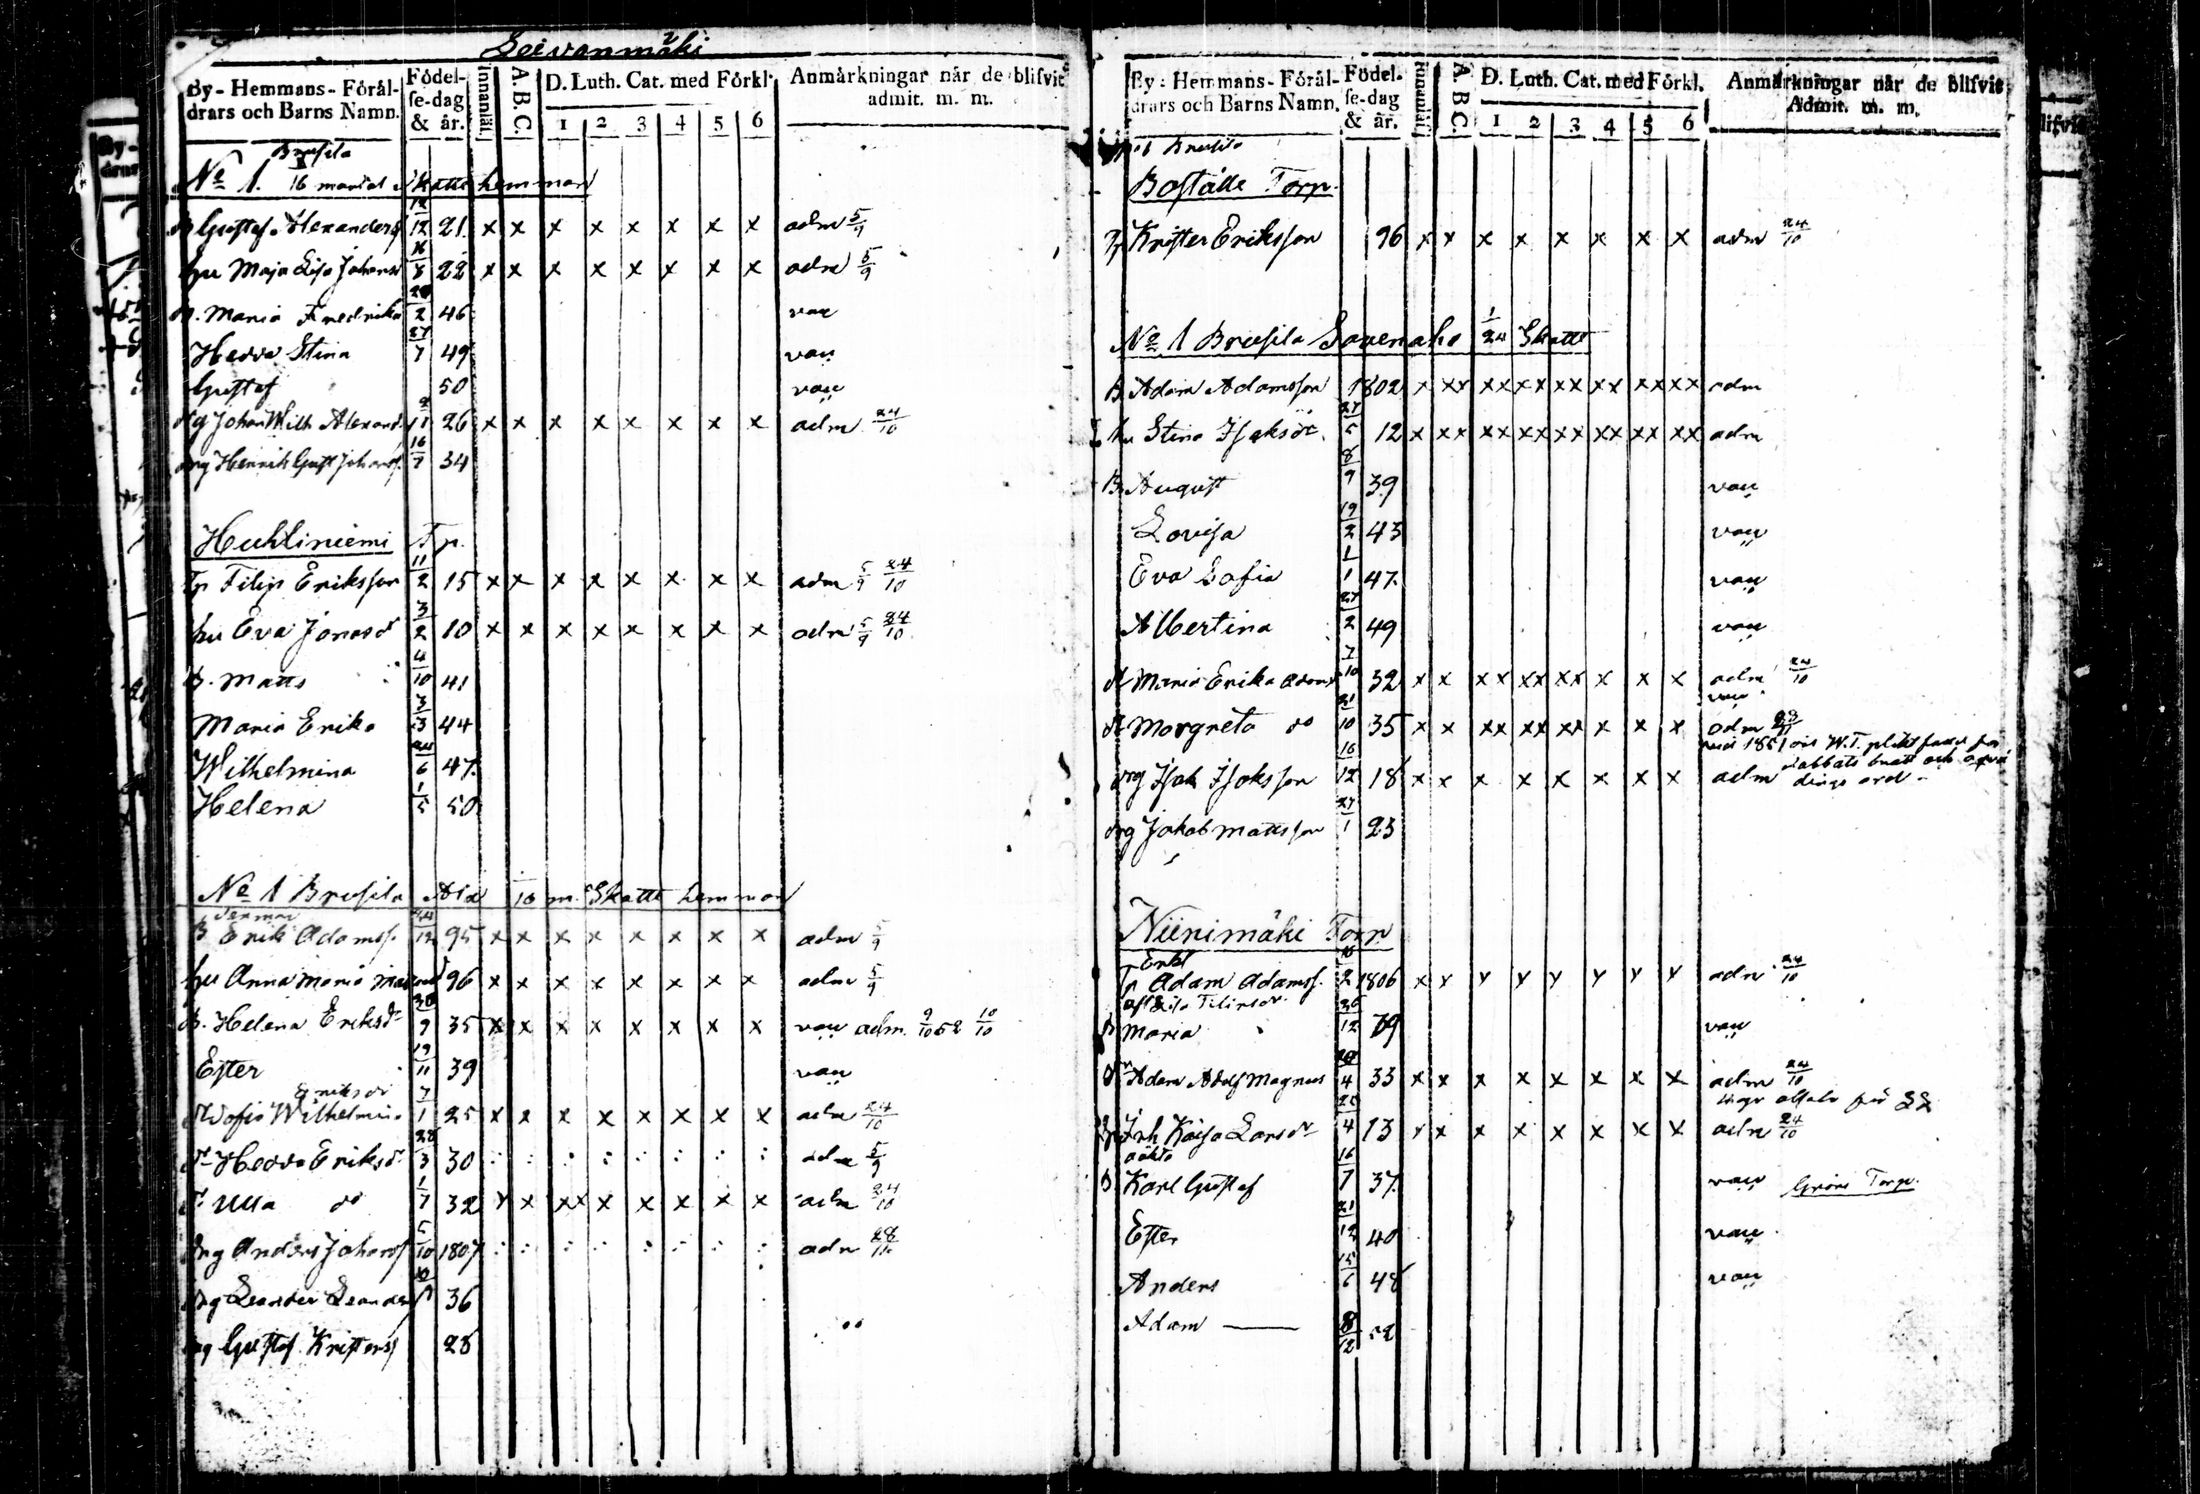 Leivanmäki
By- Hemmans- Föräl-drars och Barns Namn. Födel-se-dag & år. Innanläs. A.B.C. D. Luth. Cat. med Förkl. 1 2 3 4 5 6 Anmärkningar när de blifvit admit. m. m.
Brusila
No 1. 1/16 mantal Skatte hemman
B Gustaf Alexanders 12/12 21 x x x x x x x x adm 5/9
hu Maja Lisa Johansd 16/8 22 x x x x x x x x adm 5/9
B. Maria Fredrika 20/2 46 vac
Hedda Stina 27/7 49 vac
Gustaf 50 vac
dg Johan Wilh Alexand. 2/11 26 x x x x x x x x adm 24/10
drg Henrik Gust Johanss. 16/7 34
Huhliniemi Tp.
Tp Filip Eriksson 11/2 15 x x x x x x x x adm 5/9 24/10
hu Eva Jonasdr 3/2 10 x x x x x x x x adm 5/9 24/10
B. Matts 4/10 41
Maria Erika 3/3 44
Wilhelmina 24/6 47.
Helena 1/5 50
No 1 Brusila 16 m. Skatte hemman
B Erik Adamss. 24/12 95 x x x x x x x x adm 5/9
hu Anna Maria 96 x x x x x x x x adm 5/9
B. Helena Eriksdr 30/9 35 x x x x x x x x vac adm. 9/10 52 10/10
Ester 19/11 39 vac
Eriksdr
Sofia Wilhelmina 7/1 25 x x x x x x x x adm 24/10
dr Hedda Eriksdr 28/3 30 : : : : : : : : adm 5/9
dr Ulla do 1/7 32 x x xx x x x x x adm 24/10
drg Anders Johanss 5/10 1807 : : : : : : : : adm 28/11
drg Leander Leander 36
drg Gustaf Kristerss 28
By: Hemmans- Föräl-drars och Barns Namn. Födel-se-dag & är. Innanläs. A.B.C. D. Luth. Cat. med Förkl. 1 2 3 4 5 6 Anmärkningar när de blifvit Admit. m. m.
No 1 Brusila
Boställe Torp.
Tp Krister Eriksson 96 x x x x x x x x adm 24/10
No 1 Brusila Savenaho 1/24 Skatte
B Adam Adamsson 1802 x xx xx xx xx xx xx xx adm
hu Stina Isaksdr. 27/5 12 x xx xx xx xx xx xx xx adm
B. August 8/9 39 vac
Lovisa 19/2 43 vac
Eva Sofia 1/1 47. vac
Albertina 27/2 49 vac
dr Maria Erika Adamsd 7/10 32 x x xx xx xx x x x adm 24/10
vac
dr Margreta do 21/10 35 x x xx xx xx x x x adm
1851 W.T.
sabbats brott och
drg Isak Isaksson 16/12 18 x x x x x x x x adm
drg Jakob Mattsson 27/1 23
Niinimäki Torp
Enkl
Tp Adam Adamss. 2 1806 x x x x x x x x adm 24/10
B Maria 12 29 vac
Adam Adolf Magnus 4 33 x x x x x x x x adm 24/10
Inh Kaisa Larsdr 25/4 13 x x x x x x x x adm 24/10
oäkta
B. Karl Gustaf 16/7 37. vac Gröni Torp.
Ester 21/12 40 vac
Anders 15/6 48 vac
Adam —— 8/12 52